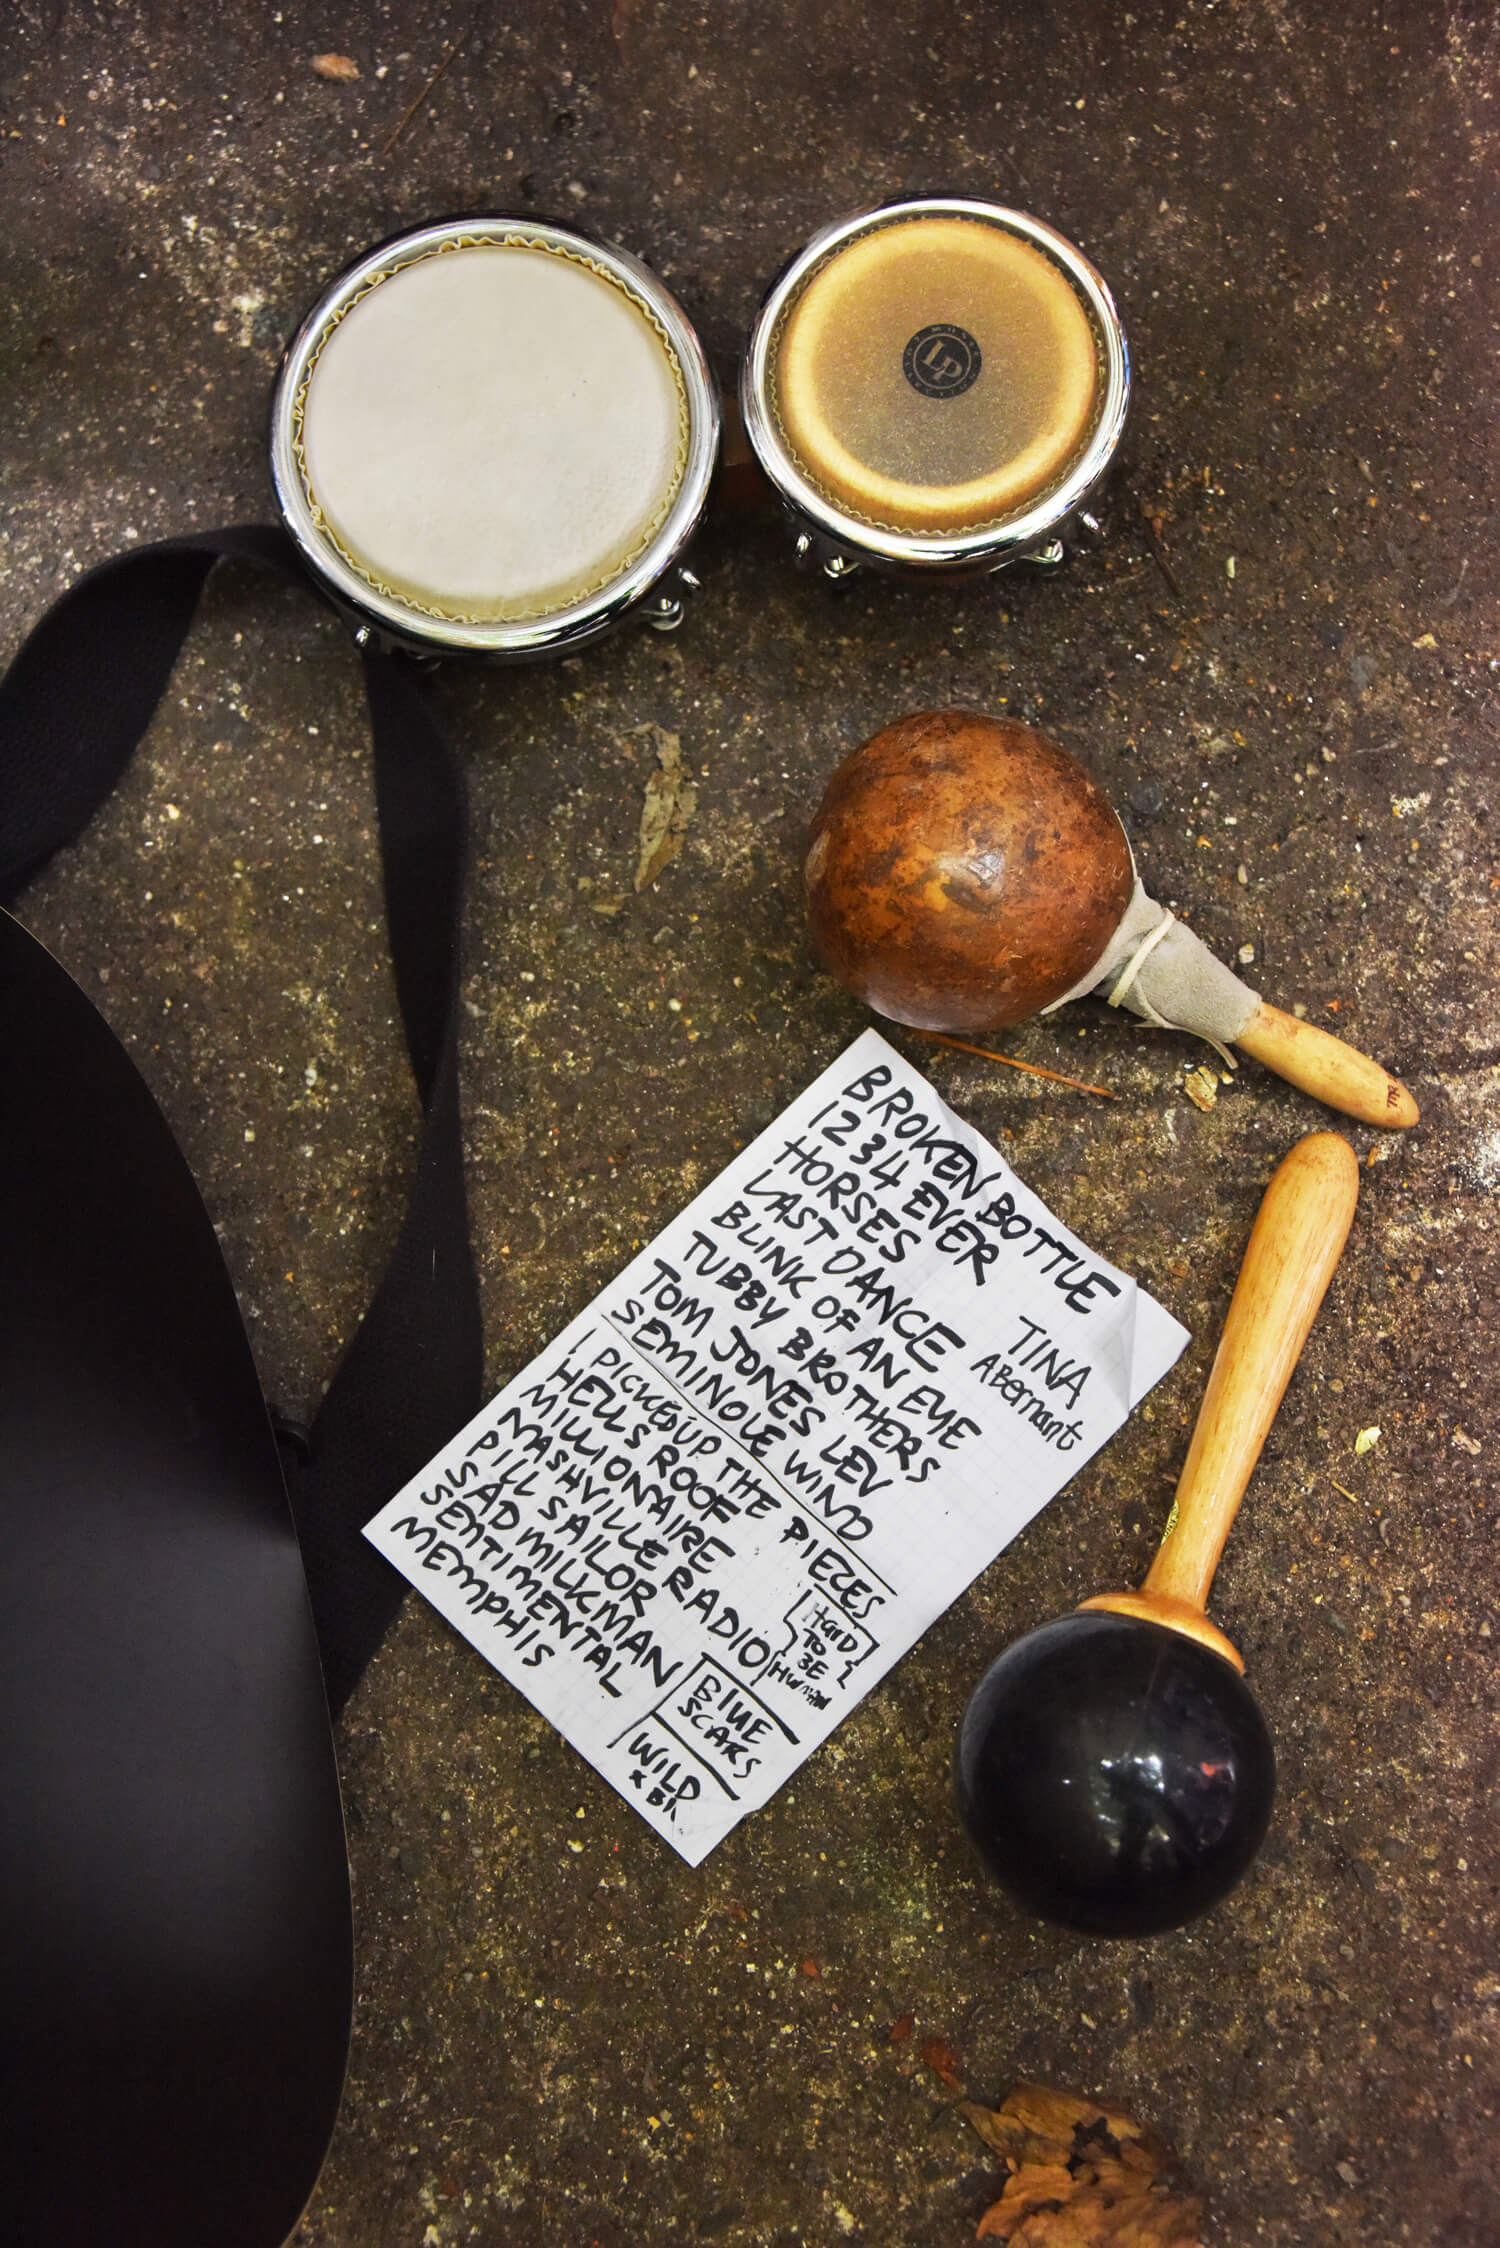 BROKEN BOTTLE
1234 EVER
HORSES
LAST DANCE
BLINK OF AN EYE
TUBBY BROTHERS
TOM JONES LEV
SEMINOLE WIND
TINA
ABernant
I PICKED UP THE PIECES
HELLS ROOF
MILLIONAIRE
NASHVILLE RADIO
PILL SAILOR
SAD MILKMAN
SENTIMENTAL
MEMPHIS
HarD
TO
BE
HUMAN
BLUE
SCARS
WILD
LP